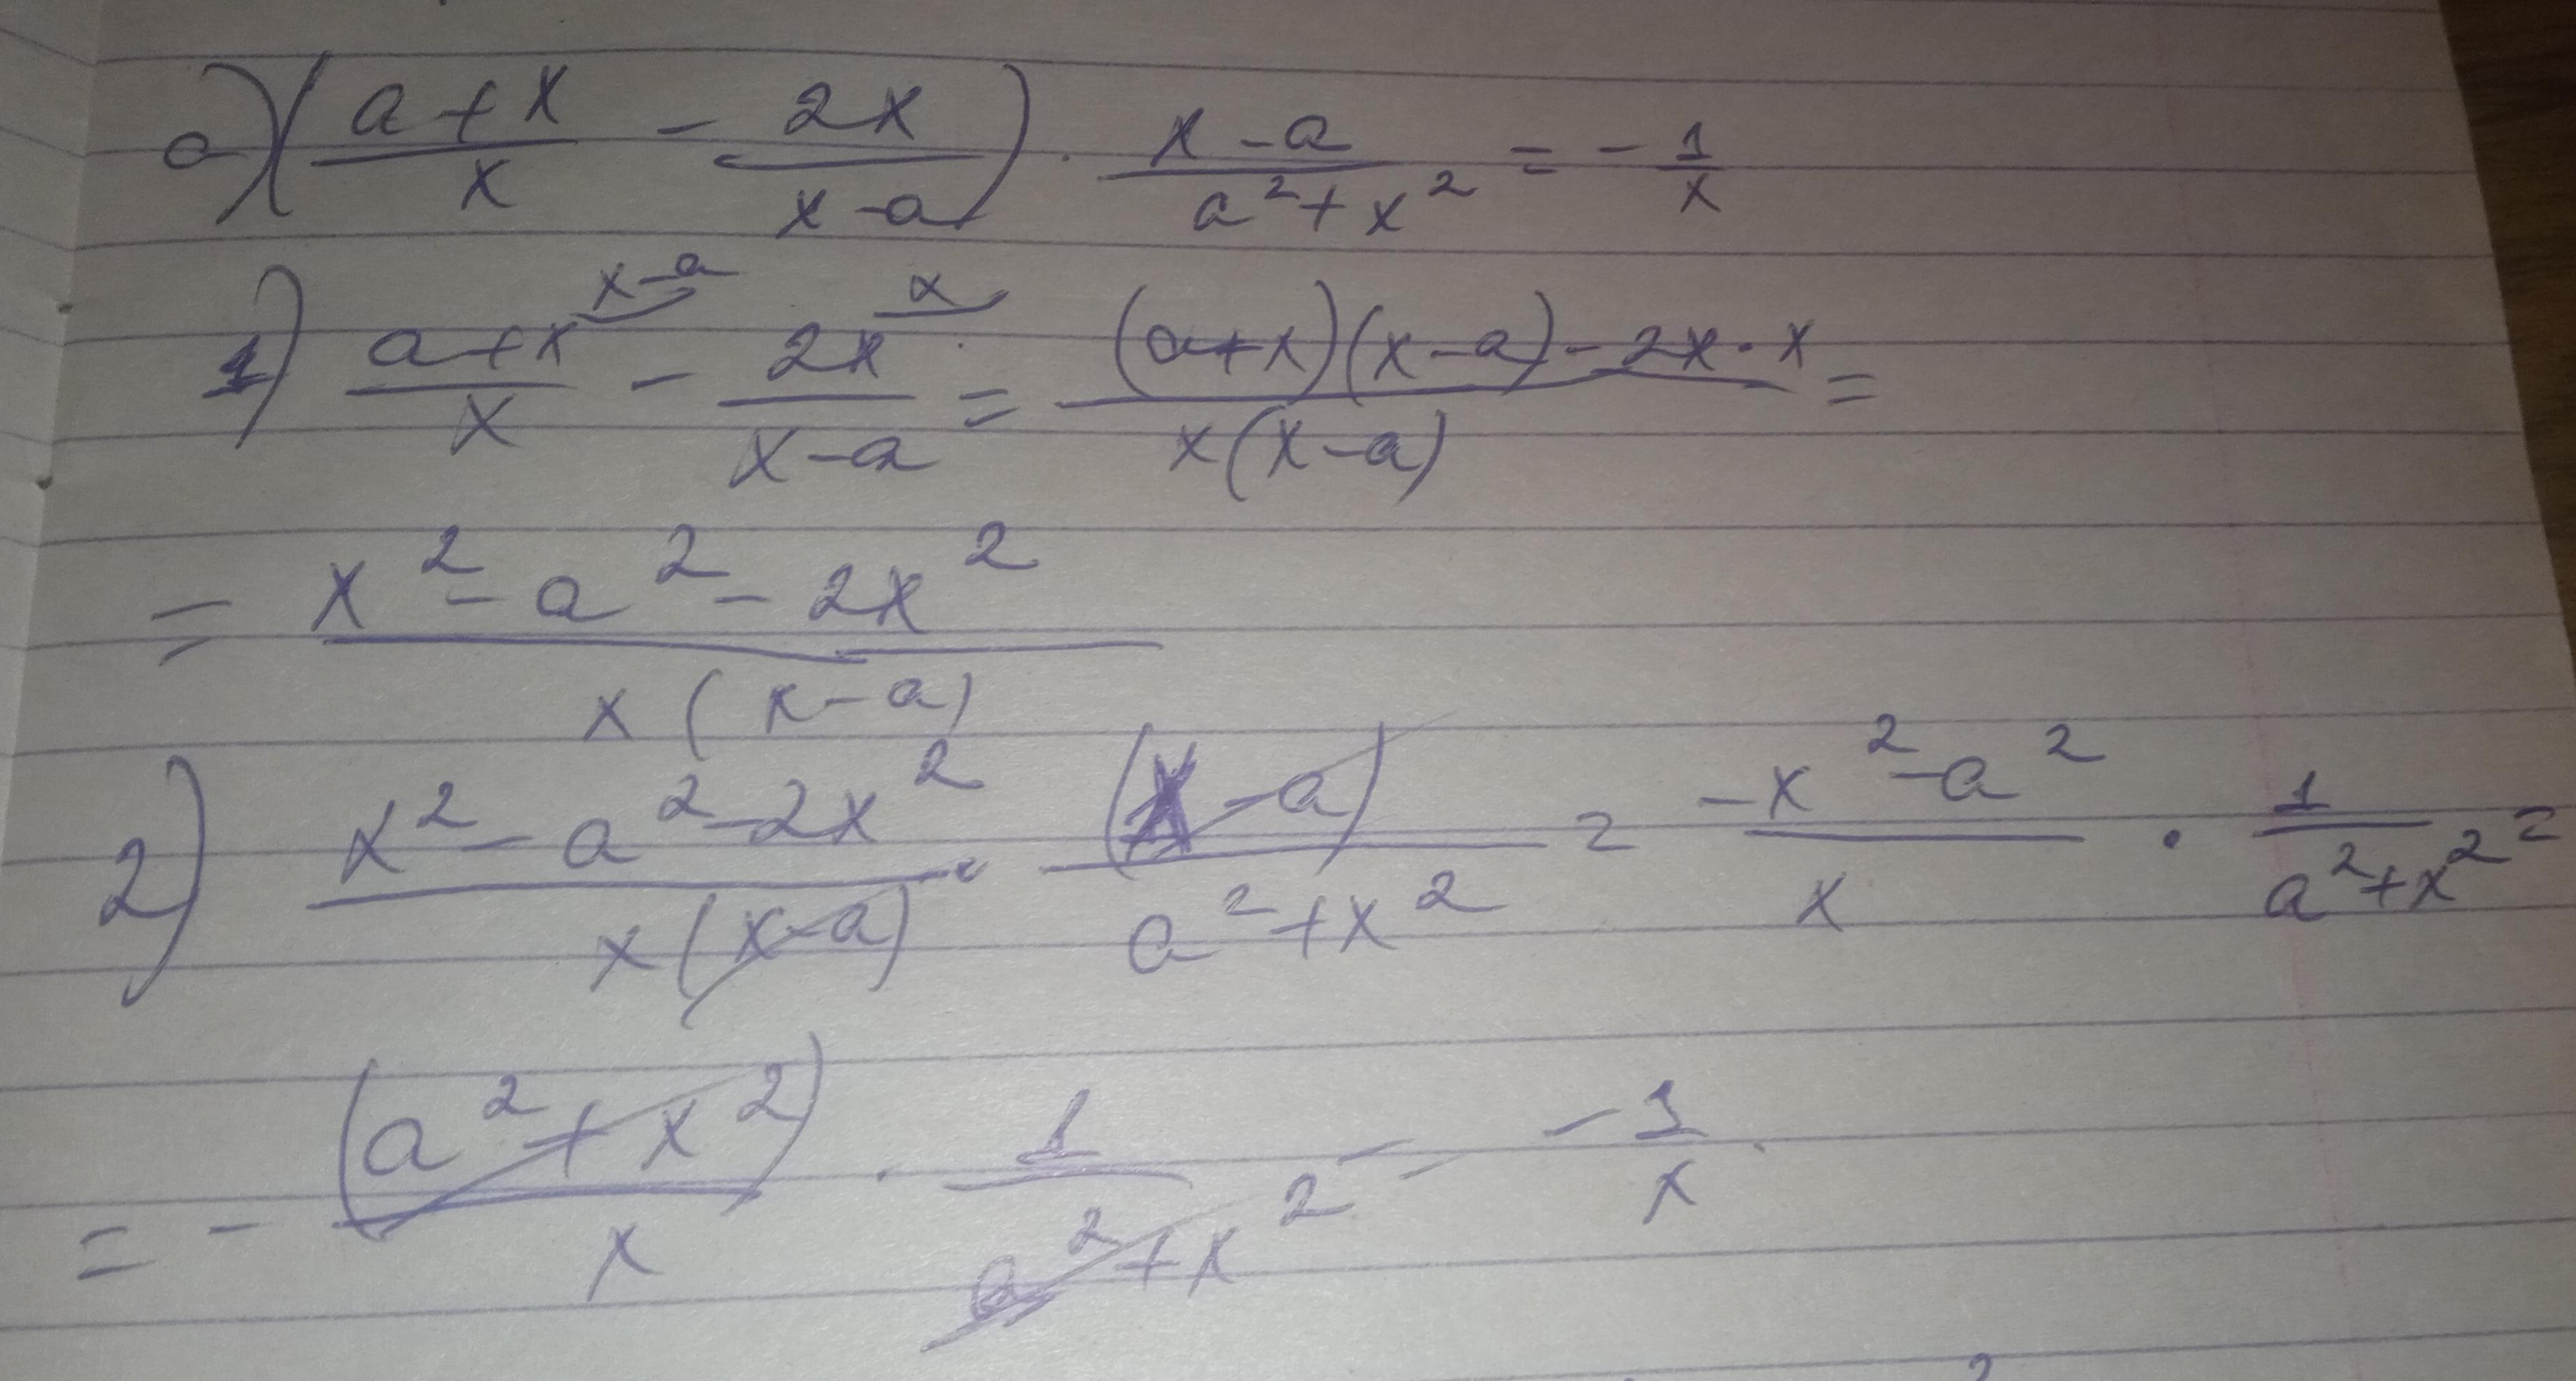 a) ( (a+x)/x - 2x/(x-a) ) · (x-a)/(a²+x²) = - 1/x
1) (a+x)/x ^(x-a) - 2x/(x-a) ^x = ((a+x)(x-a) - 2x·x)/(x(x-a)) =
= (x² - a² - 2x²)/(x(x-a))
2) (x² - a² - 2x²)/(x(x-a)) · (x-a)/(a²+x²) = (-x² - a²)/x · 1/(a²+x²) =
= - (a²+x²)/x · 1/(a²+x²) = -1/x